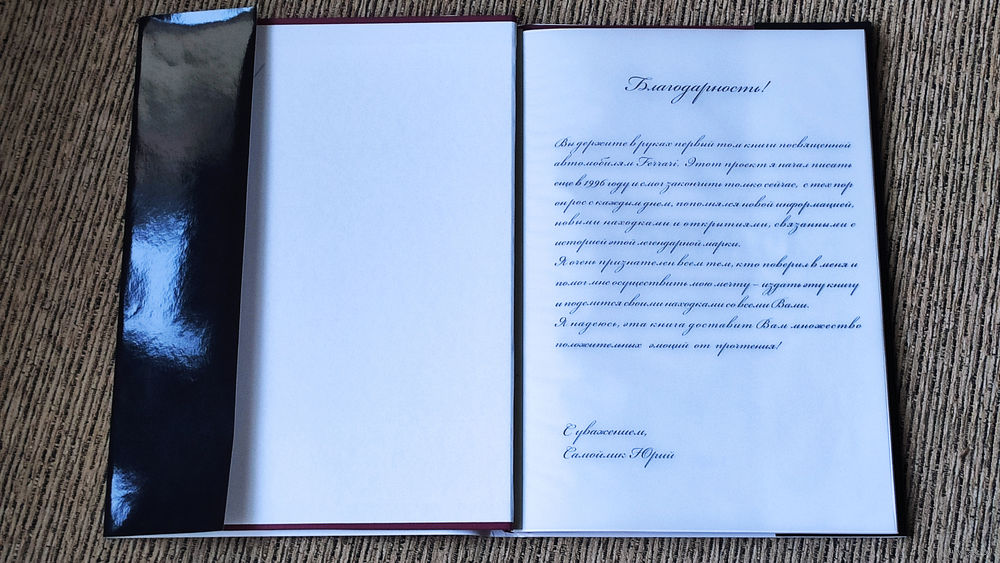 Благодарность!
Вы держите в руках первый том книги посвященной
автомобилям Ferrari. Этот проект я начал писать
еще в 1996 году и смог закончить только сейчас, с тех пор
он рос с каждым днем, пополнялся новой информацией,
новыми находками и открытиями, связанными с
историей этой легендарной марки.
Я очень признателен всем тем, кто поверил в меня и
помог мне осуществить мою мечту – издать эту книгу
и поделится своими находками со всеми Вами.
Я надеюсь, эта книга доставит Вам множество
положительных эмоций от прочтения!
С уважением,
Самойлик Юрий